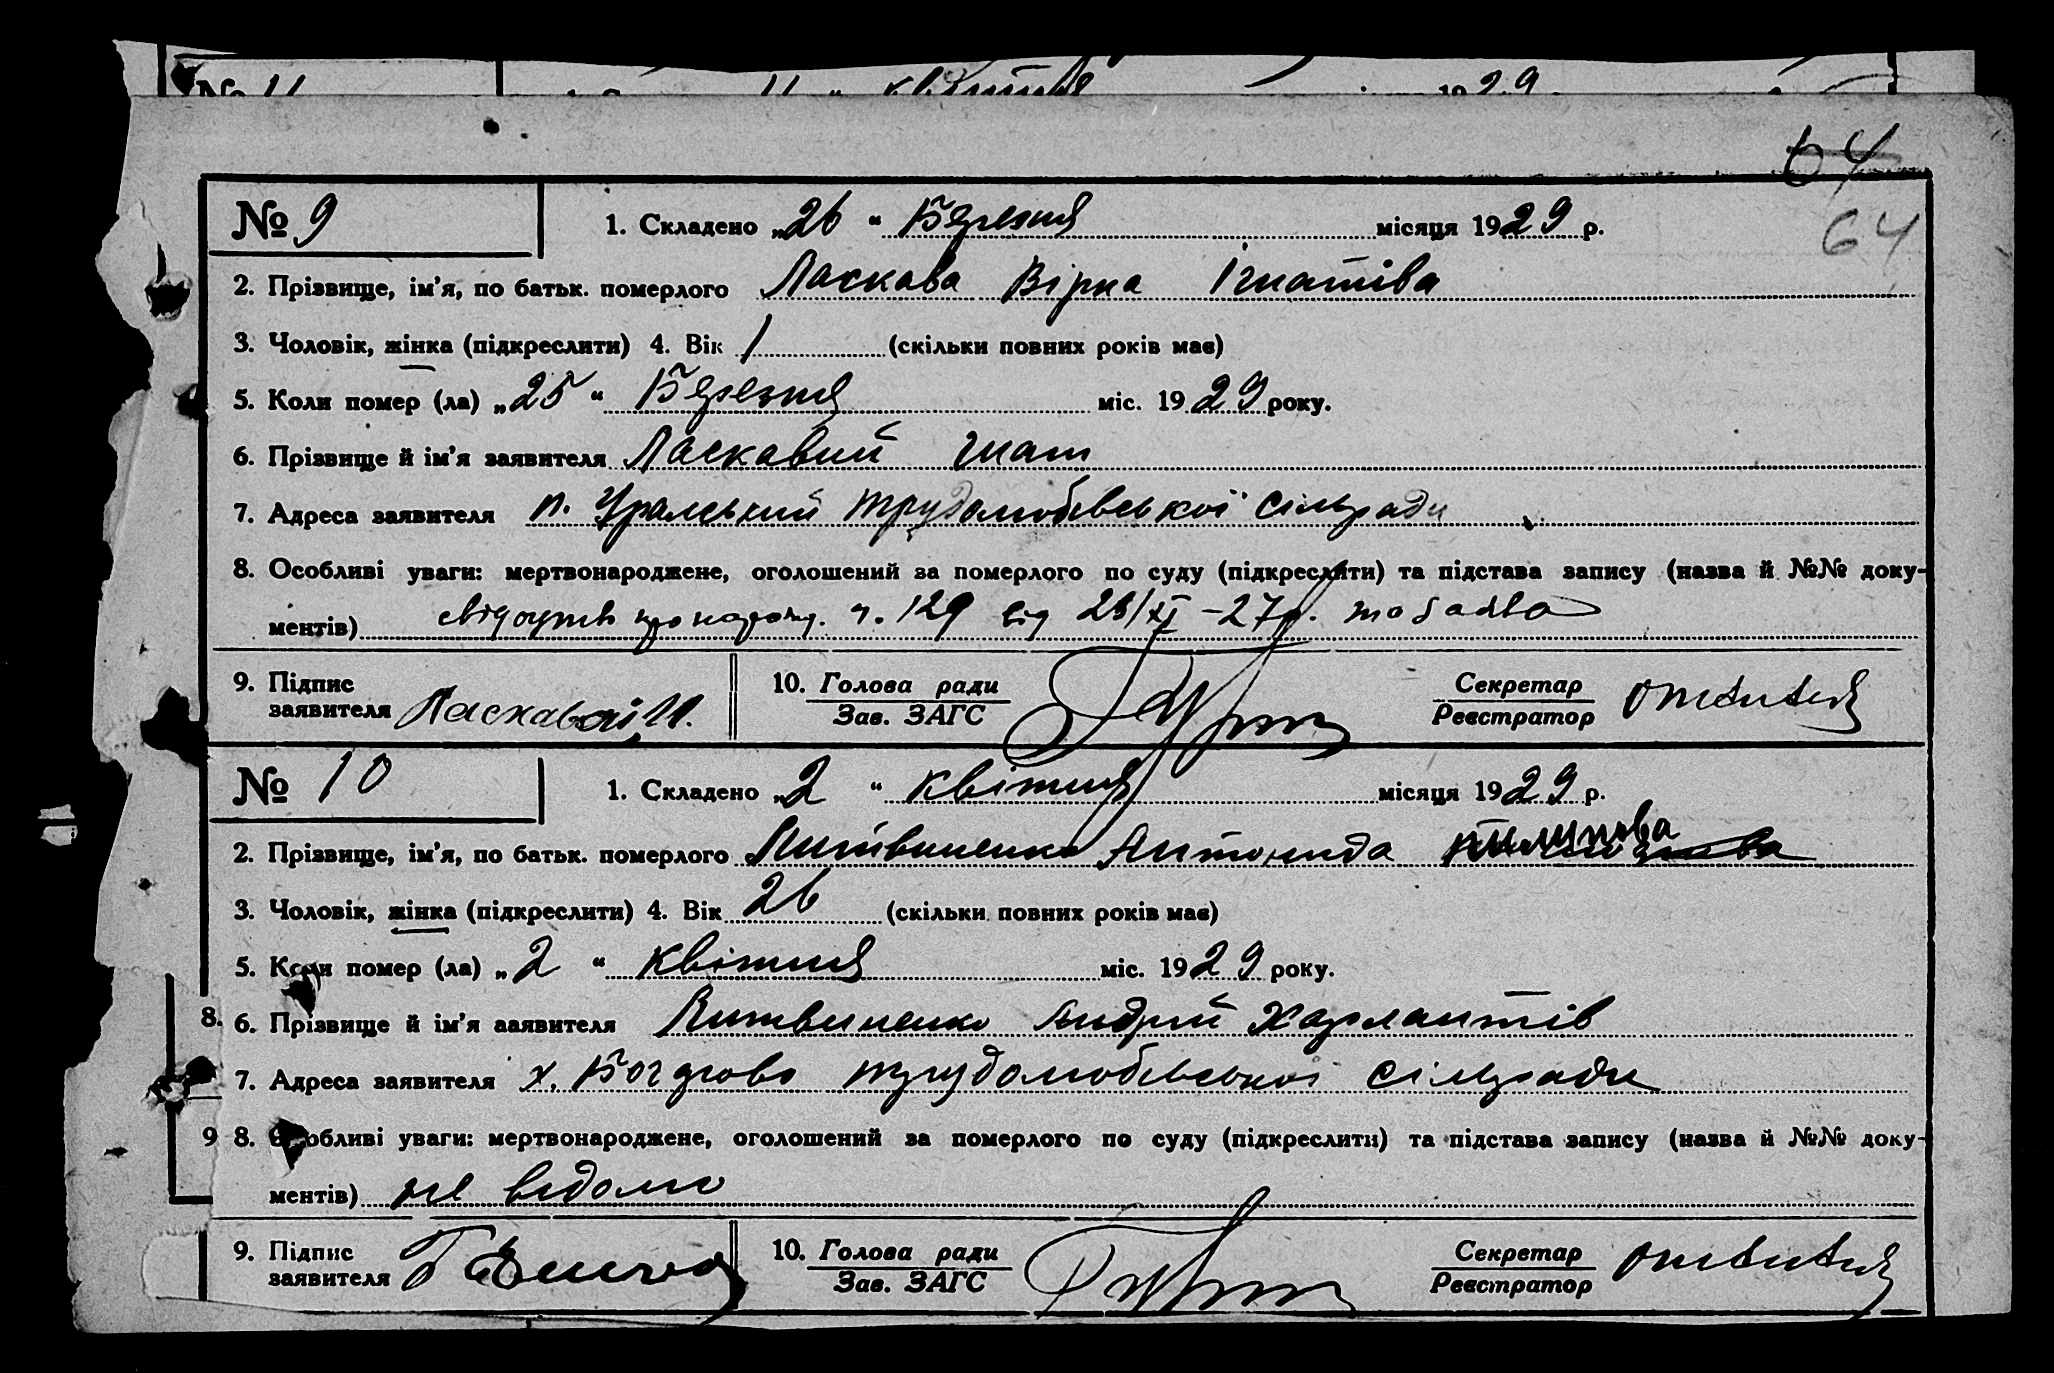 № 11 11 " квітня 1929
64
64
№ 9 1. Складено „26 “ Березня місяця 1929 р.
2. Прізвище, ім'я, по батьк. померлого Ласкава Вірка Ігнатіва
3. Чоловік, жінка (підкреслити) 4. Вік 1 (скільки повних років має)
5. Коли помер (ла) „25 “ Березня міс. 1929 року.
6. Прізвище й ім'я заявителя Ласкавий Гнат
7. Адреса заявителя п. Уралський трудолюбівської сільради
8. Особливі уваги: мертвонароджене, оголошений за померлого по суду (підкреслити) та підстава запису (назва й №№ доку-
ментів) ч. 129 від 23/XI - 27 р.
9. Підпис 10. Голова ради Секретар
заявителя Ласкавий И. Зав. ЗАГС Реєстратор
№ 10 1. Складено „2 “ квітня місяця 1929 р.
2. Прізвище, ім'я, по батьк. померлого Литвиненко Антонида
3. Чоловік, жінка (підкреслити) 4. Вік 26 (скільки повних років має)
5. Коли помер (ла) „2 “ квітня міс. 1929 року.
8. 6. Прізвище й ім'я заявителя Литвиненко Андрій Харлантів
7. Адреса заявителя х. трудолюбівської сільради
9 8. Особливі уваги: мертвонароджене, оголошений за померлого по суду (підкреслити) та підстава запису (назва й №№ доку-
ментів) не відомо
9. Підпис 10. Голова ради Секретар
заявителя Зав. ЗАГС Реєстратор